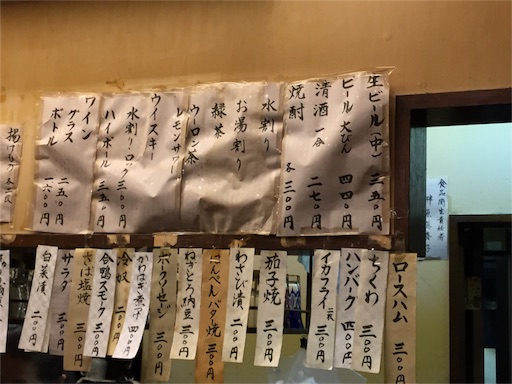 生ビール(中)三五〇円
ビール大びん 四四〇円
清酒 一合 二七〇円
焼酎 各 三〇〇円
水割り
お湯割り
緑茶
ウーロン茶
レモンサワー
ウイスキー
水割り・ロック 三〇〇円
ハイボール 三五〇円
ワイン
グラス 二五〇円
ボトル 一六〇〇円
食品衛生責任者
ロースハム 三〇〇円
ちくわ 三〇〇円
ハンバーグ 四〇〇円
イカフライ 二枚 三〇〇円
茄子焼 三〇〇円
わさび漬 二〇〇円
はんぺんバタ焼 三〇〇円
ねぎとろ納豆 三〇〇円
三〇〇円
かわはぎ煮付 四〇〇円
冷奴 二〇〇円
合鴨スモーク 三〇〇円
さば塩焼 三〇〇円
サラダ 二〇〇円
白菜漬 二〇〇円